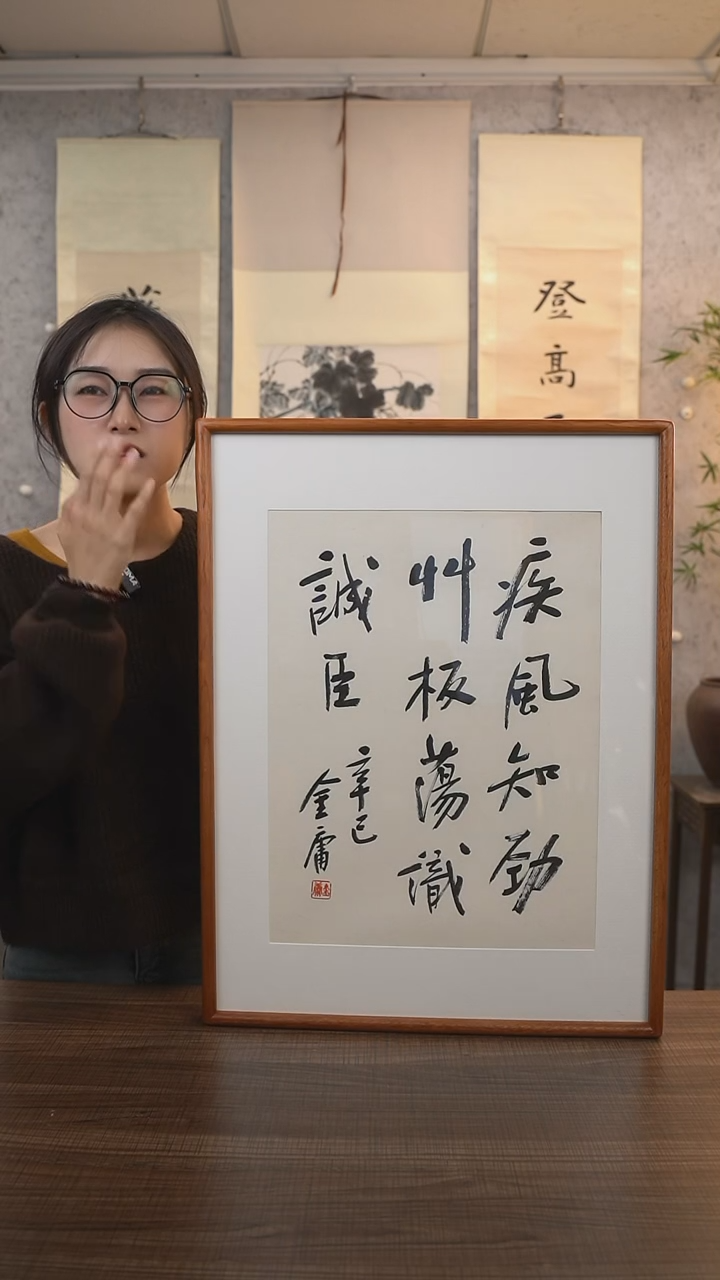 疾風知勁
艸板蕩識
誠臣
辛巳
金庸
登高